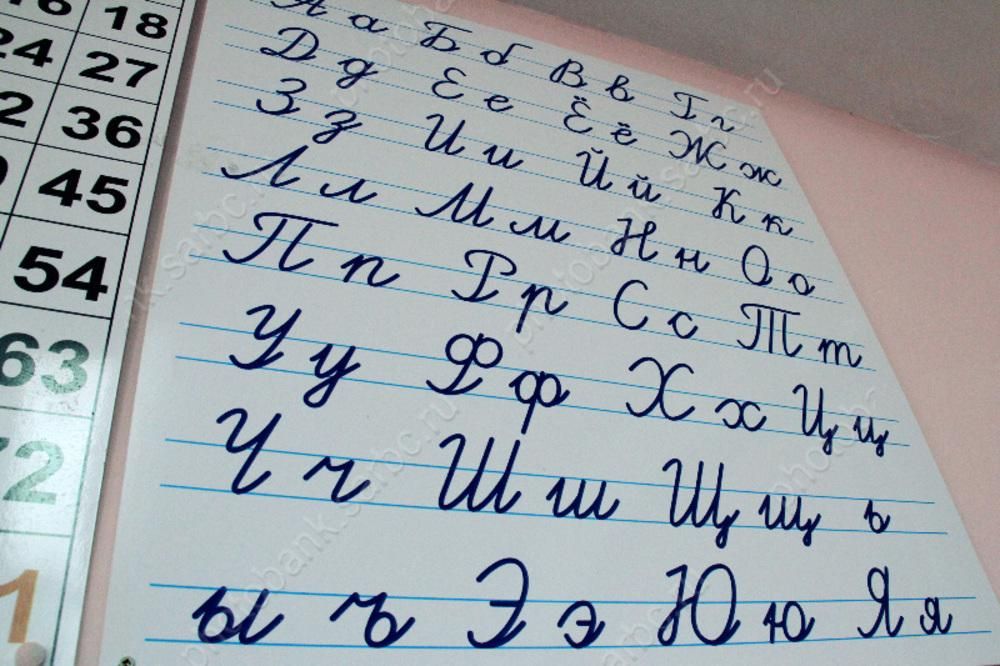 16 18
24 27
2 36
45
54
63
72
1
А а Б б В в Г г
Д д Е е Ё ё Ж ж
З з И и Й й К к
Л л М м Н н О о
П п Р р С с Т т
У у Ф ф Х х Ц ц
Ч ч Ш ш Щ щ ь
ы ъ Э э Ю ю Я я
photobank.sarbc.ru